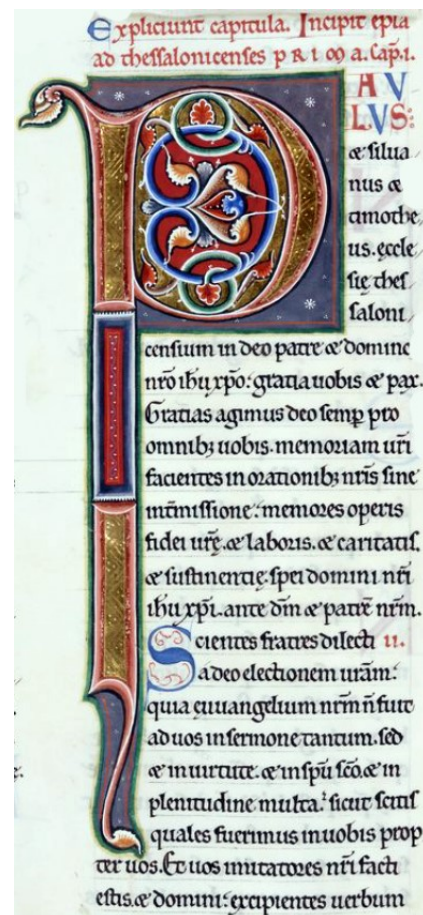 Expliciunt capitula. Incipit ep̄ia
ad thessalonicenses PRIMA. Cap̄. I.
PAV
LVS:
& silua
nus &
timothe
us. eccle
sie thes
saloni
censium in deo patre & domino
nr̄o ih̄u xp̄o: gratia uobis & pax.
Gratias agimus deo semp̄ pro
omnibꝫ uobis. memoriam ur̄i
facientes in orationibꝫ nr̄is sine
int̄missione: memores operis
fidei ur̄ę. & laboris. & caritatis.
& sustinentię. spei domini nr̄i
ih̄u xp̄i. ante dm̄ & patrē nr̄m.
Scientes fratres dilecti II.
a deo electionem ur̄am:
quia euuangelium nr̄m n̄ fuit
ad uos in sermone tantum. sed
& in uirtute. & in sp̄u sc̄o. & in
plenitudine multa: sicut scitis
quales fuerimus in uobis prop
ter uos. Et uos imitatores nr̄i facti
estis. & domini: excipientes uerbum